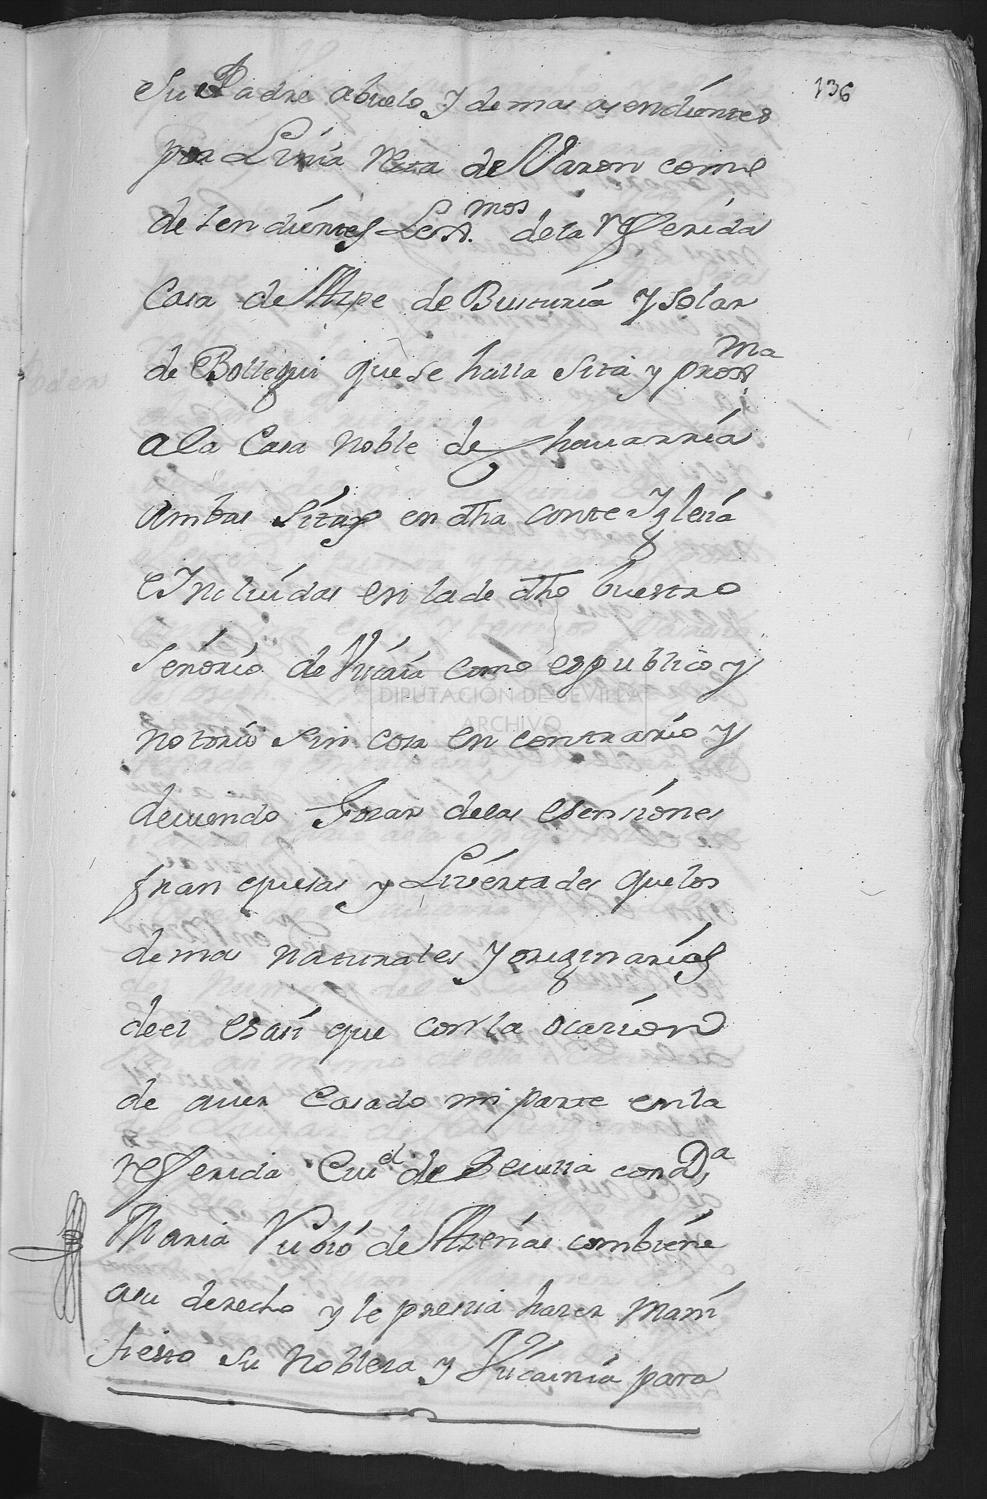 136
Su Padre abuelo y demas asendientes
por Linia Reta de Varon como
desendientes Lexmos. de la referida
Casa de Axpe de Busturia y Solar
de Bollegui que se halla Sita y proxma
a la Casa noble de chauarria
ambas Sitas en dha ante Yglesia
e Yncluidas en la de dho buestro
Señorio de Vicaia como es publico y
notorio sin cosa en contrario y
deuiendo Gosar de las esensiones
franquesas y Livertades que los
demas naturales y originarios
de el es asi que con la ocasion
de auer Casado mi parte en la
referida Ciud de Seuilla con Da
Maria Rubio de Arenas combiene
a su derecho y le presisa haser mani
fiesto su Noblesa y Vicainia para
DIPUTACIÓN DE SEVILLA
ARCHIVO